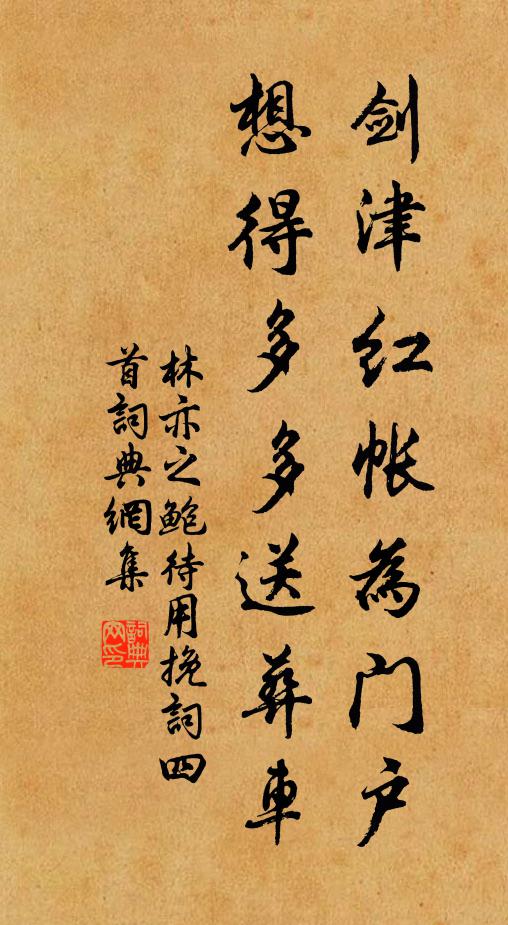 剑津红帐為门户
想得多多送葬車
林亦之鲍待用挽詞四
首詞典網集
詞典
网印